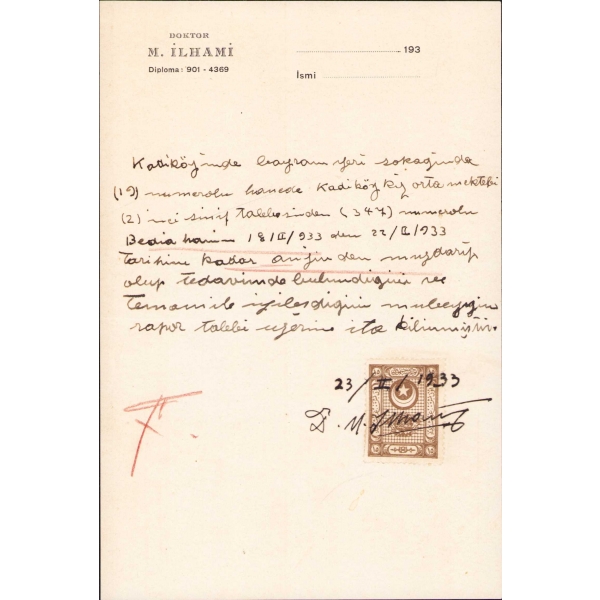 DOKTOR
M. İLHAMİ
Diploma: 901 - 4369
193
İsmi
Kadiköyinde bayram yeri sokaginda
(19) numerolu hanede Kadiköy kiz orta mektebi
(2) inci sinif talebesinden (347) numerolu
Bedia hanim 18/II/933 den 22/II/933
tarihine kadar anjinden muzdarip
olup tedavimde bulundigini ve
temamile iyilesdigini mubeyyin
rapor talebi uzerine ita kilinmiştir.
23/II/1933
D. M. İlhami